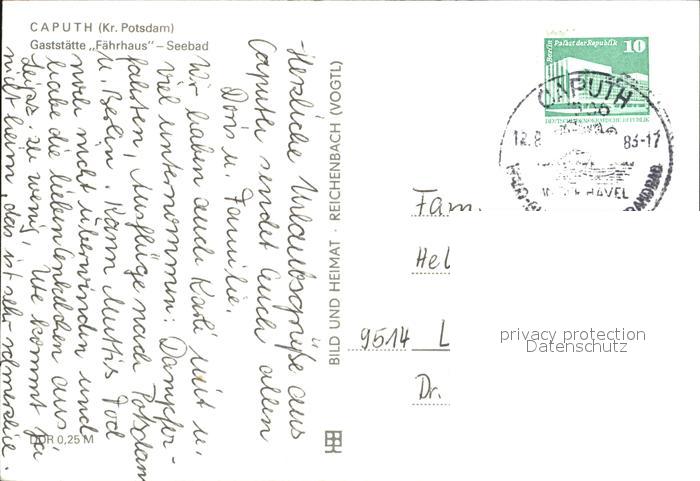 CAPUTH (Kr. Potsdam)
Gaststätte „Fährhaus" – Seebad
-Herzliche Urlaubsgrüße aus
Caputh sendet Euch allen
Doris u. Familie.
Wir haben auch Karli mit u.
viel unternommen: Dampfer-
fahrten, Ausflüge nach Potsdam
u. Berlin. Kann Muttis Tod
noch nicht überwinden und
liebe die lieben Enkelchen aus
zu wenig, Ute kommt ja
nicht heim, das ist sehr
DDR 0,25 M
BILD UND HEIMAT · REICHENBACH (VOGTL)
Berlin Palast der Republik 10
DEUTSCHE DEMOKRATISCHE REPUBLIK
CAPUTH
12.8 83-17
HAVEL
Fam.
Hel
9514 L
Dr.
privacy protection
Datenschutz